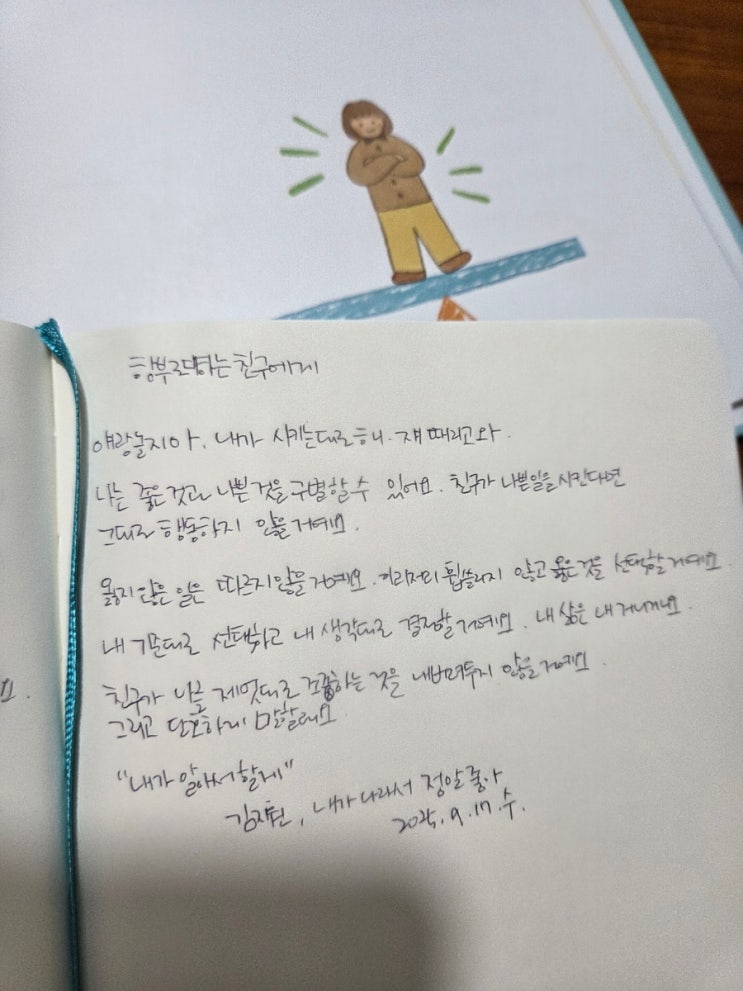 함부로대하는 친구에게
얘랑놀지마. 내가 시키는대로해. 쟤 때리고와.
나는 좋은 것과 나쁜 것을 구별할 수 있어요. 친구가 나쁜일을 시킨다면
그대로 행동하지 않을거예요.
옳지 않은 일은 따르지않을거예요. 이리저리 휩쓸리지 않고 옳은 것을 선택할거예요.
내 기준대로 선택하고 내 생각대로 결정할거예요. 내 삶은 내 거니까요.
친구가 나를 제멋대로 조종하는 것을 내버려두지 않을거예요.
그리고 단호하게 말할래요.
"내가 알아서할게"
내가나라서 정말좋아
2025. 9. 17 수.
요.